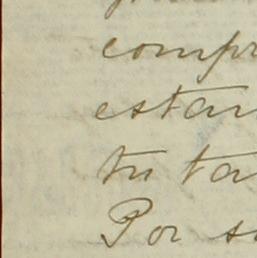 compr
estan
tu ta
Por s